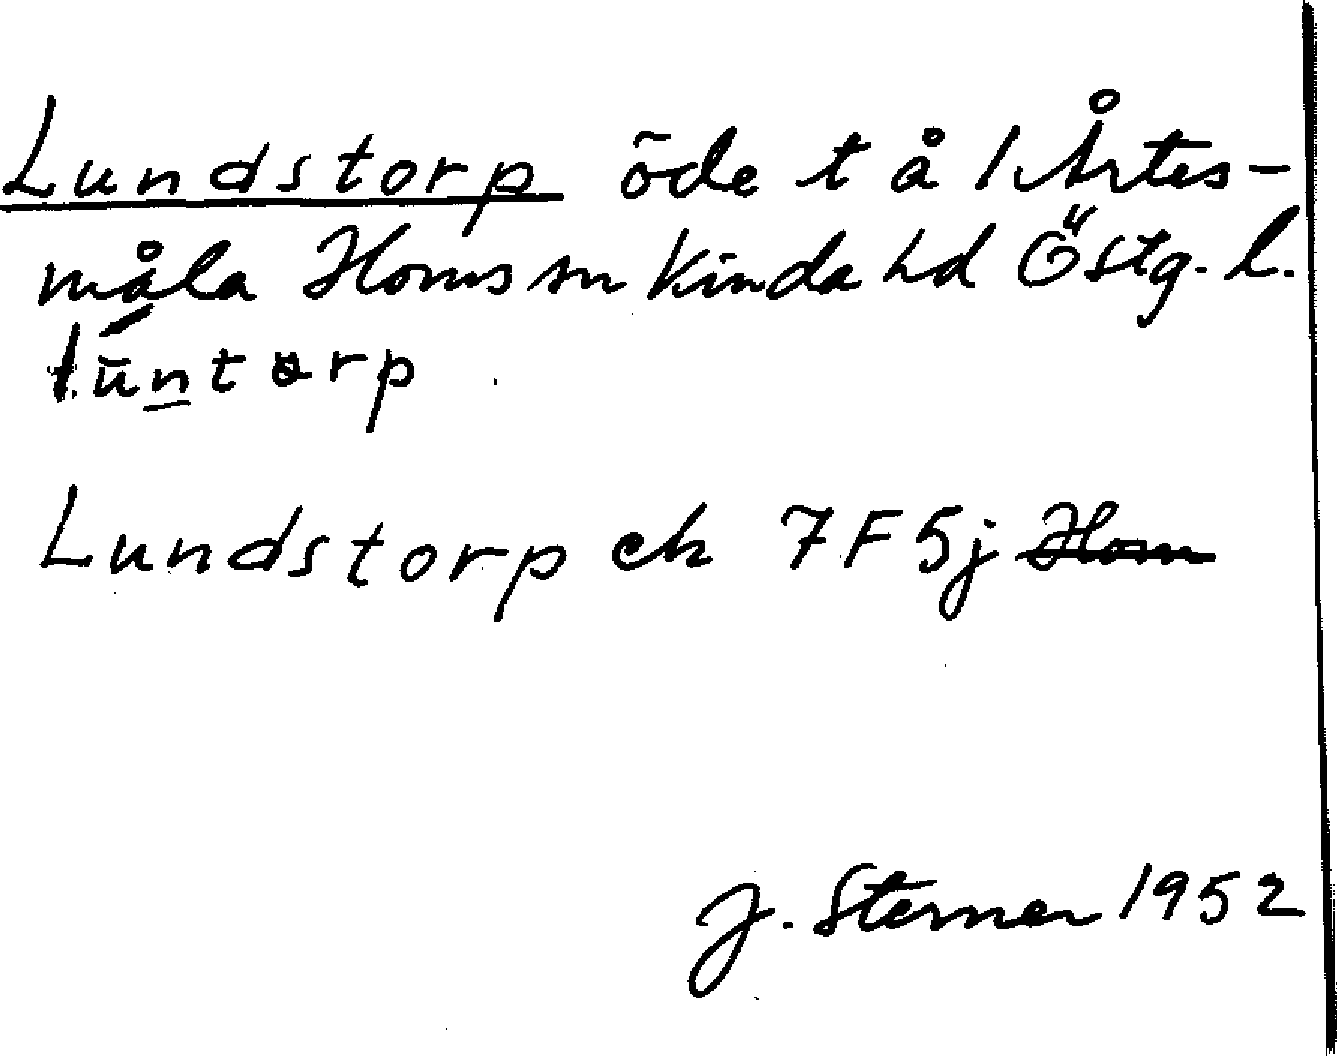 Lundstorp öde t å 1 Årtes-
måla Horns sn Kinda hd Östg. l.
lúntorp
Lundstorp ek 7F5j Horn
J. Sterner 1952